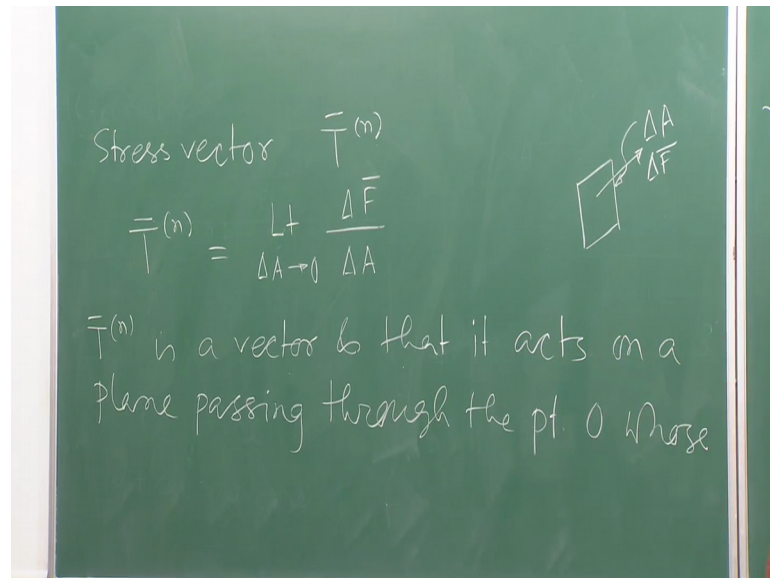 Stress vector T̄⁽ⁿ⁾
ΔA
ΔF̄
T̄⁽ⁿ⁾ = Lt ΔA→0 ΔF̄/ΔA
T̄⁽ⁿ⁾ is a vector & that it acts on a
plane passing through the pt. O whose